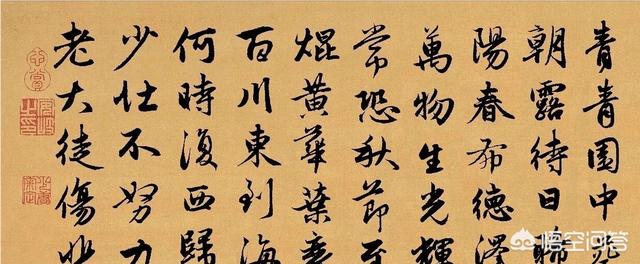 青青園中葵
朝露待日晞
陽春布德澤
萬物生光輝
常恐秋節至
焜黃華葉衰
百川東到海
何時復西歸
少壯不努力
老大徒傷悲
悟空问答